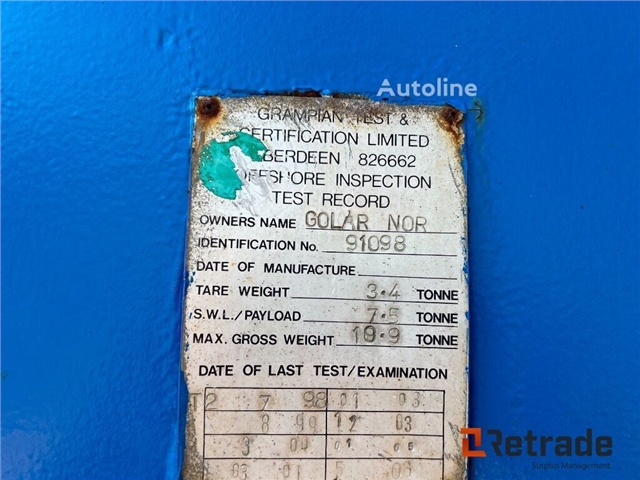 Autoline
GRAMPIAN TEST &
CERTIFICATION LIMITED
ABERDEEN 826662
OFFSHORE INSPECTION
TEST RECORD
OWNERS NAME GOLAR NOR
IDENTIFICATION No. 91098
DATE OF MANUFACTURE
TARE WEIGHT 3.4 TONNE
S.W.L./PAYLOAD 7.5 TONNE
MAX. GROSS WEIGHT 10.9 TONNE
DATE OF LAST TEST/EXAMINATION
T2 7 98 01 03
8 99 12 03
3 00
03 01 5
Retrade
Surplus Management